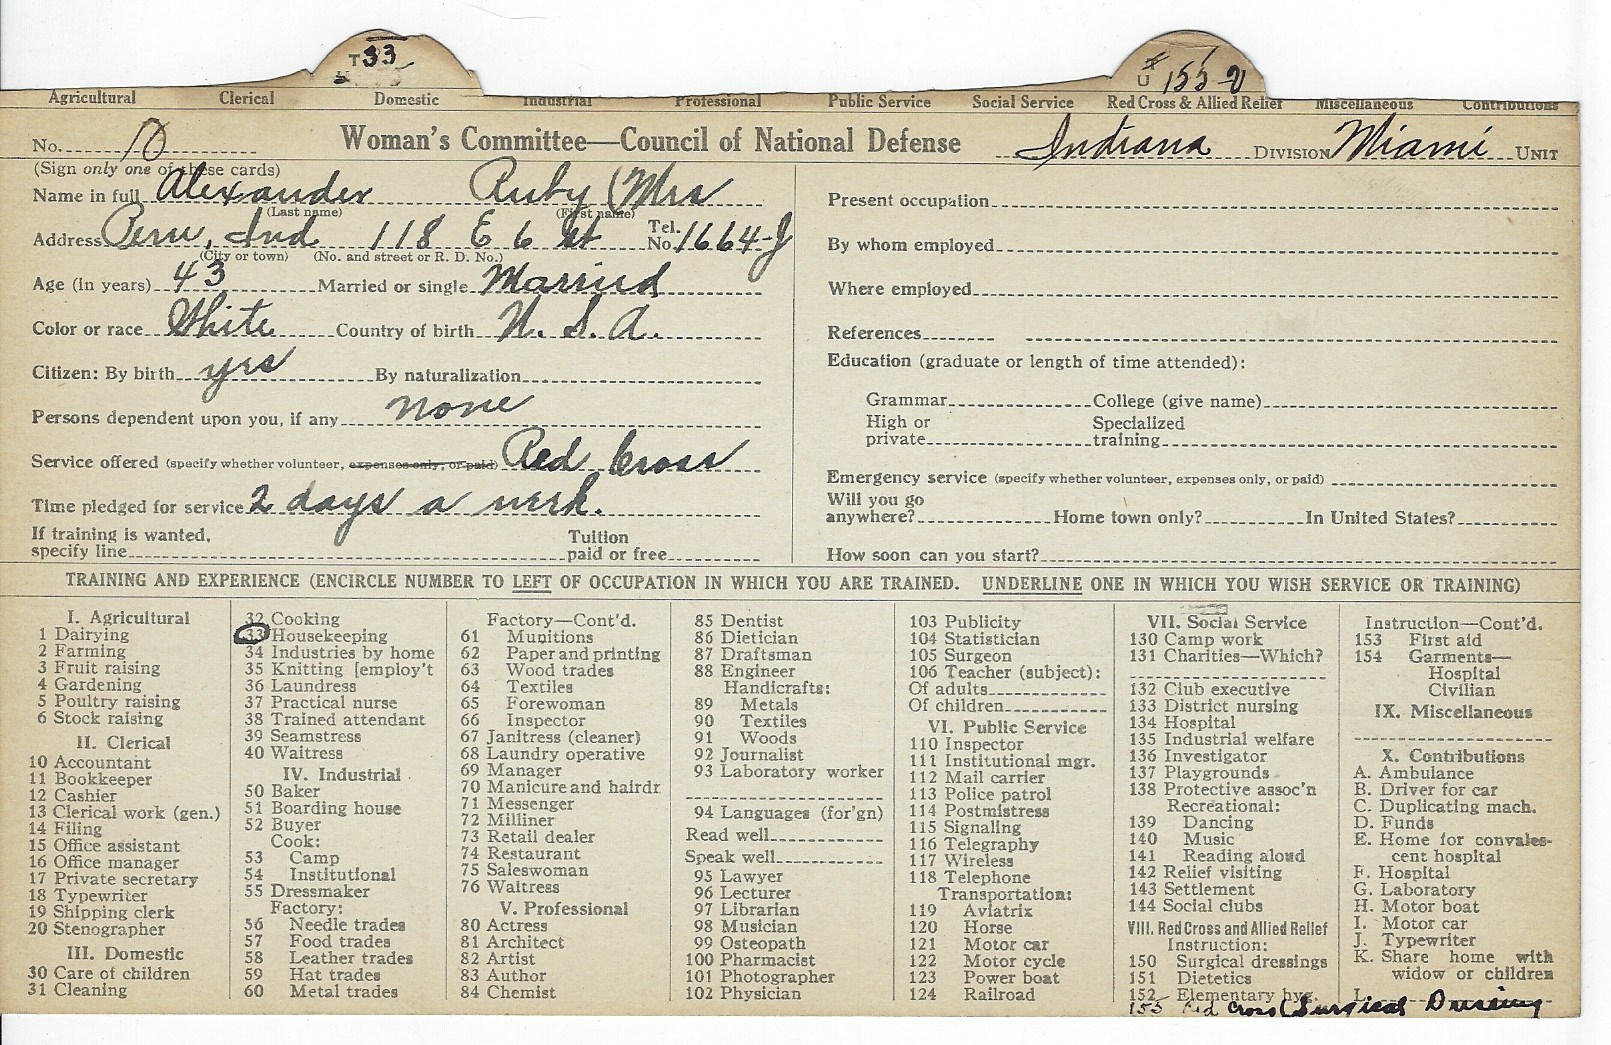 T33
U 155 V
Agricultural Clerical Domestic Industrial Professional Public Service Social Service Red Cross & Allied Relief Miscellaneous Contributions
No. 10 Woman's Committee—Council of National Defense Indiana DIVISION Miami UNIT
(Sign only one of these cards)
Name in full Alexander Ruby (Mrs
(Last name) (First name)
Address Peru, Ind 118 E 6 St Tel. No. 1664-J
(City or town) (No. and street or R. D. No.)
Age (in years) 43 Married or single Married
Color or race White Country of birth U. S. A.
Citizen: By birth yes By naturalization
Persons dependent upon you, if any none
Service offered (specify whether volunteer, expenses only, or paid) Red Cross
Time pledged for service 2 days a week.
If training is wanted, specify line Tuition paid or free
Present occupation
By whom employed
Where employed
References
Education (graduate or length of time attended):
Grammar College (give name)
High or private Specialized training
Emergency service (specify whether volunteer, expenses only, or paid)
Will you go anywhere? Home town only? In United States?
How soon can you start?
TRAINING AND EXPERIENCE (ENCIRCLE NUMBER TO LEFT OF OCCUPATION IN WHICH YOU ARE TRAINED. UNDERLINE ONE IN WHICH YOU WISH SERVICE OR TRAINING)
I. Agricultural
1 Dairying
2 Farming
3 Fruit raising
4 Gardening
5 Poultry raising
6 Stock raising
II. Clerical
10 Accountant
11 Bookkeeper
12 Cashier
13 Clerical work (gen.)
14 Filing
15 Office assistant
16 Office manager
17 Private secretary
18 Typewriter
19 Shipping clerk
20 Stenographer
III. Domestic
30 Care of children
31 Cleaning
32 Cooking
33 Housekeeping
34 Industries by home
35 Knitting [employ't
36 Laundress
37 Practical nurse
38 Trained attendant
39 Seamstress
40 Waitress
IV. Industrial
50 Baker
51 Boarding house
52 Buyer
Cook:
53 Camp
54 Institutional
55 Dressmaker
Factory:
56 Needle trades
57 Food trades
58 Leather trades
59 Hat trades
60 Metal trades
Factory—Cont'd.
61 Munitions
62 Paper and printing
63 Wood trades
64 Textiles
65 Forewoman
66 Inspector
67 Janitress (cleaner)
68 Laundry operative
69 Manager
70 Manicure and hairdr
71 Messenger
72 Milliner
73 Retail dealer
74 Restaurant
75 Saleswoman
76 Waitress
V. Professional
80 Actress
81 Architect
82 Artist
83 Author
84 Chemist
85 Dentist
86 Dietician
87 Draftsman
88 Engineer
Handicrafts:
89 Metals
90 Textiles
91 Woods
92 Journalist
93 Laboratory worker
94 Languages (for'gn)
Read well
Speak well
95 Lawyer
96 Lecturer
97 Librarian
98 Musician
99 Osteopath
100 Pharmacist
101 Photographer
102 Physician
103 Publicity
104 Statistician
105 Surgeon
106 Teacher (subject):
Of adults
Of children
VI. Public Service
110 Inspector
111 Institutional mgr.
112 Mail carrier
113 Police patrol
114 Postmistress
115 Signaling
116 Telegraphy
117 Wireless
118 Telephone
Transportation:
119 Aviatrix
120 Horse
121 Motor car
122 Motor cycle
123 Power boat
124 Railroad
VII. Social Service
130 Camp work
131 Charities—Which?
132 Club executive
133 District nursing
134 Hospital
135 Industrial welfare
136 Investigator
137 Playgrounds
138 Protective assoc'n
Recreational:
139 Dancing
140 Music
141 Reading aloud
142 Relief visiting
143 Settlement
144 Social clubs
VIII. Red Cross and Allied Relief
Instruction:
150 Surgical dressings
151 Dietetics
152 Elementary hyg.
155 Red Cross (Surgical Dressing
Instruction—Cont'd.
153 First aid
154 Garments—
Hospital
Civilian
IX. Miscellaneous
X. Contributions
A. Ambulance
B. Driver for car
C. Duplicating mach.
D. Funds
E. Home for convales-
cent hospital
F. Hospital
G. Laboratory
H. Motor boat
I. Motor car
J. Typewriter
K. Share home with
widow or children
L.